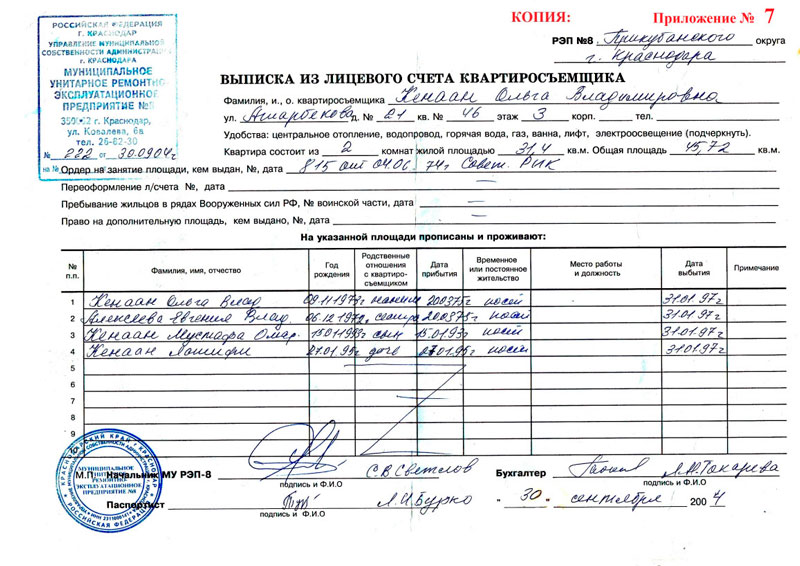 КОПИЯ: Приложение № 7
РОССИЙСКАЯ ФЕДЕРАЦИЯ
г. КРАСНОДАР
УПРАВЛЕНИЕ МУНИЦИПАЛЬНОЙ
СОБСТВЕННОСТИ АДМИНИСТРАЦИИ
г. КРАСНОДАРА
МУНИЦИПАЛЬНОЕ
УНИТАРНОЕ РЕМОНТНО
ЭКСПЛУАТАЦИОННОЕ
ПРЕДПРИЯТИЕ №8
г. Краснодар,
ул. Ковалева, 6а
тел. 26-82-30
№ 222 от 30.09.04г
на №
РЭП №8 Прикубанского округа
г. Краснодара
ВЫПИСКА ИЗ ЛИЦЕВОГО СЧЕТА КВАРТИРОСЪЕМЩИКА
Фамилия, и., о. квартиросъемщика Кенаан Ольга Владимировна
ул. Атарбекова д. № 21 кв. № 46 этаж 3 корп. тел.
Удобства: центральное отопление, водопровод, горячая вода, газ, ванна, лифт, электроосвещение (подчеркнуть).
Квартира состоит из 2 комнат жилой площадью 31,4 кв.м. Общая площадь 45,72 кв.м.
Ордер на занятие площади, кем выдан, №, дата 815 от 04.06.74г Совет. РИК
Переоформление л/счета №, дата =
Пребывание жильцов в рядах Вооруженных сил РФ, № воинской части, дата =
Право на дополнительную площадь, кем выдано, №, дата =
На указанной площади прописаны и проживают:
№ п.п. Фамилия, имя, отчество Год рождения Родственные отношения с квартиро-съемщиком Дата прибытия Временное или постоянное жительство Место работы и должность Дата выбытия Примечание
1 Кенаан Ольга Влад 09.11.1973г 200375г пост 31.01.97г
2 Алексеева Евгения Влад. 06.12.1972г. сестра 200375г пост 31.01.97г
3 Кенаан Мустафа Омар. сын 15.01.93г пост 31.01.97г
4 Кенаан 27.01.95г доч 27.01.95г пост 31.01.97г
5
6
7
8
9
М.П. Начальник МУ РЭП-8 С.В. Светлов Бухгалтер Л.М. Токарева
подпись и Ф.И.О подпись и Ф.И.О
Паспортист Л.И. Бурко " 30 " сентября 2004
подпись и Ф.И.О
КРАСНОДАРСКИЙ КРАЙ
КРАСНОДАР
МУНИЦИПАЛЬНОЕ
УНИТАРНОЕ
РЕМОНТНО
ЭКСПЛУАТАЦИОННОЕ
ПРЕДПРИЯТИЕ №8
РОССИЙСКАЯ ФЕДЕРАЦИЯ